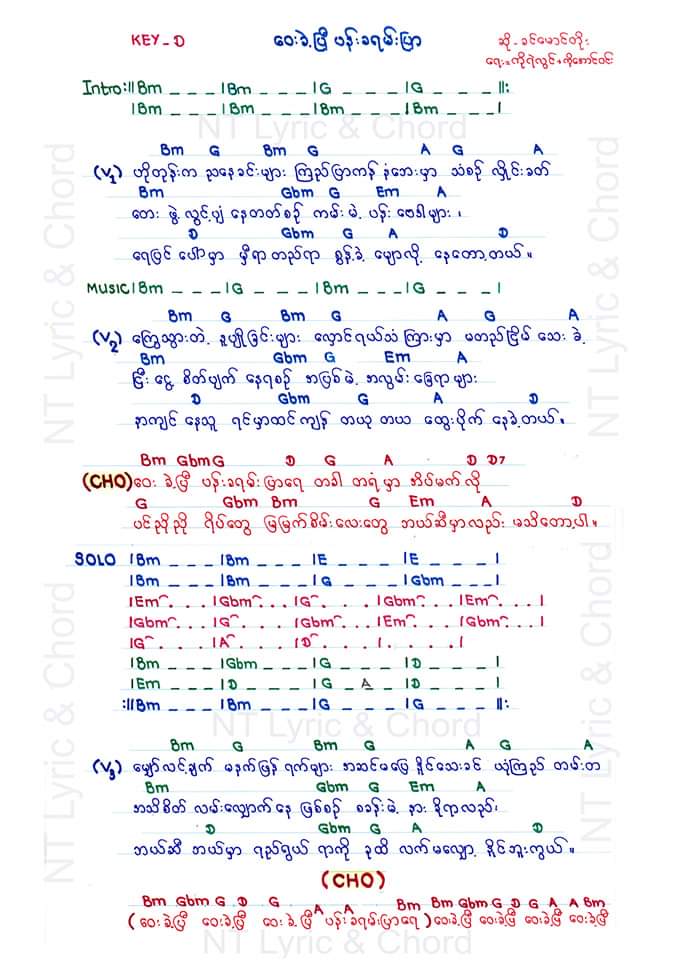 KEY - D ဝေးခဲ့ပြီ ပန်းခရမ်းပြာ ဆို - ခင်မောင်တိုး
ရေး = ကိုရဲလွင် + ကိုစောင်ဝင်း
Intro :|| Bm _ _ _ | Bm _ _ _ | G _ _ _ | G _ _ _ ||:
| Bm _ _ _ | Bm _ _ _ | Bm _ _ _ | Bm _ _ _ |
NT Lyric & Chord
Bm G Bm G A G A
(V1) ဟိုတုန်းက ညနေခင်းများ ကြည်ပြာကန် နံဘေးမှာ သံစဉ် လှိုင်းခတ်
Bm Gbm G Em A
တေး ဖွဲ့ လွင့်ပျံ့ နေတတ်စဉ် ကမ်းမဲ့ ပန်း ဗေဒါများ ၊
D Gbm G A D
ရေပြင် ပေါ်မှာ မှီရာတည်ရာ စွန့်ခဲ့ မျောလို့ နေတော့တယ် ။
MUSIC | Bm _ _ _ | G _ _ _ | Bm _ _ _ | G _ _ _ |
Bm G Bm G A G A
(V2) ကြွေသွားတဲ့ နုပျိုခြင်းများ လှောင်ရယ်သံ ကြားမှာ မတည်ငြိမ် သေး ခဲ့
Bm Gbm G Em A
ငြီးငွေ့ စိတ်ပျက် နေရစဉ် အပြစ်မဲ့ အလွမ်း ခြေရာများ
D Gbm G A D
နာကျင် နေသူ ရင်မှာထင်ကျန် တယုတယ ထွေးပိုက် နေခဲ့တယ် ။
Bm Gbm G D G A D D7
(CHO) ဝေး ခဲ့ပြီ ပန်းခရမ်းပြာရေ တခါ တရံမှာ အိပ်မက်လို
G Gbm Bm G Em A D
ပင်ညိုညို ရိပ်တွေ မြမြက်စိမ်းလေးတွေ ဘယ်ဆီမှာလည်း မသိတော့ပါ ။
SOLO | Bm _ _ _ | Bm _ _ _ | E _ _ _ | E _ _ _ |
| Bm _ _ _ | Bm _ _ _ | G _ _ _ | Gbm _ _ _ |
| Em . . . | Gbm . . . | G . . . | Gbm . . . | Em . . . |
| Gbm . . . | G . . . | Gbm . . . | Em . . . | Gbm . . . |
| G . . . | A . . . | D . . . | . . . . |
| Bm _ _ _ | Gbm _ _ _ | G _ _ _ | D _ _ _ |
| Em _ _ _ | D _ _ _ | G _ A _ | D _ _ _ |
:|| Bm _ _ _ | Bm _ _ _ | G _ _ _ | G _ _ _ ||:
NT Lyric & Chord
Bm G Bm G A G A
(V3) မျှော်လင့်ချက် မနက်ဖြန် ရက်များ အဆင်မပြေ နိုင်သေးခင် ယုံကြည် တမ်းတ
Bm Gbm G Em A
အသိစိတ် လမ်းလျှောက်နေ ဖြစ်စဉ် စခန်းမဲ့ နား ခိုရာလည်း၊
D Gbm G A D
ဘယ်ဆီ ဘယ်မှာ ရည်ရွယ် ရာကို ခုထိ လက်မလျှော့ နိုင်ဘူးကွယ် ။
(CHO)
Bm Gbm G D G A A Bm Bm Gbm G D G A A Bm
( ဝေးခဲ့ပြီ ဝေးခဲ့ပြီ ဝေး ခဲ့ပြီ ပန်းခရမ်းပြာရေ ) ဝေးခဲ့ပြီ ဝေးခဲ့ပြီ ဝေးခဲ့ပြီ ဝေးခဲ့ပြီ
NT Lyric & Chord
NT Lyric & Chord
NT Lyric & Chord
NT Lyric & Chord
NT Lyric & Chord